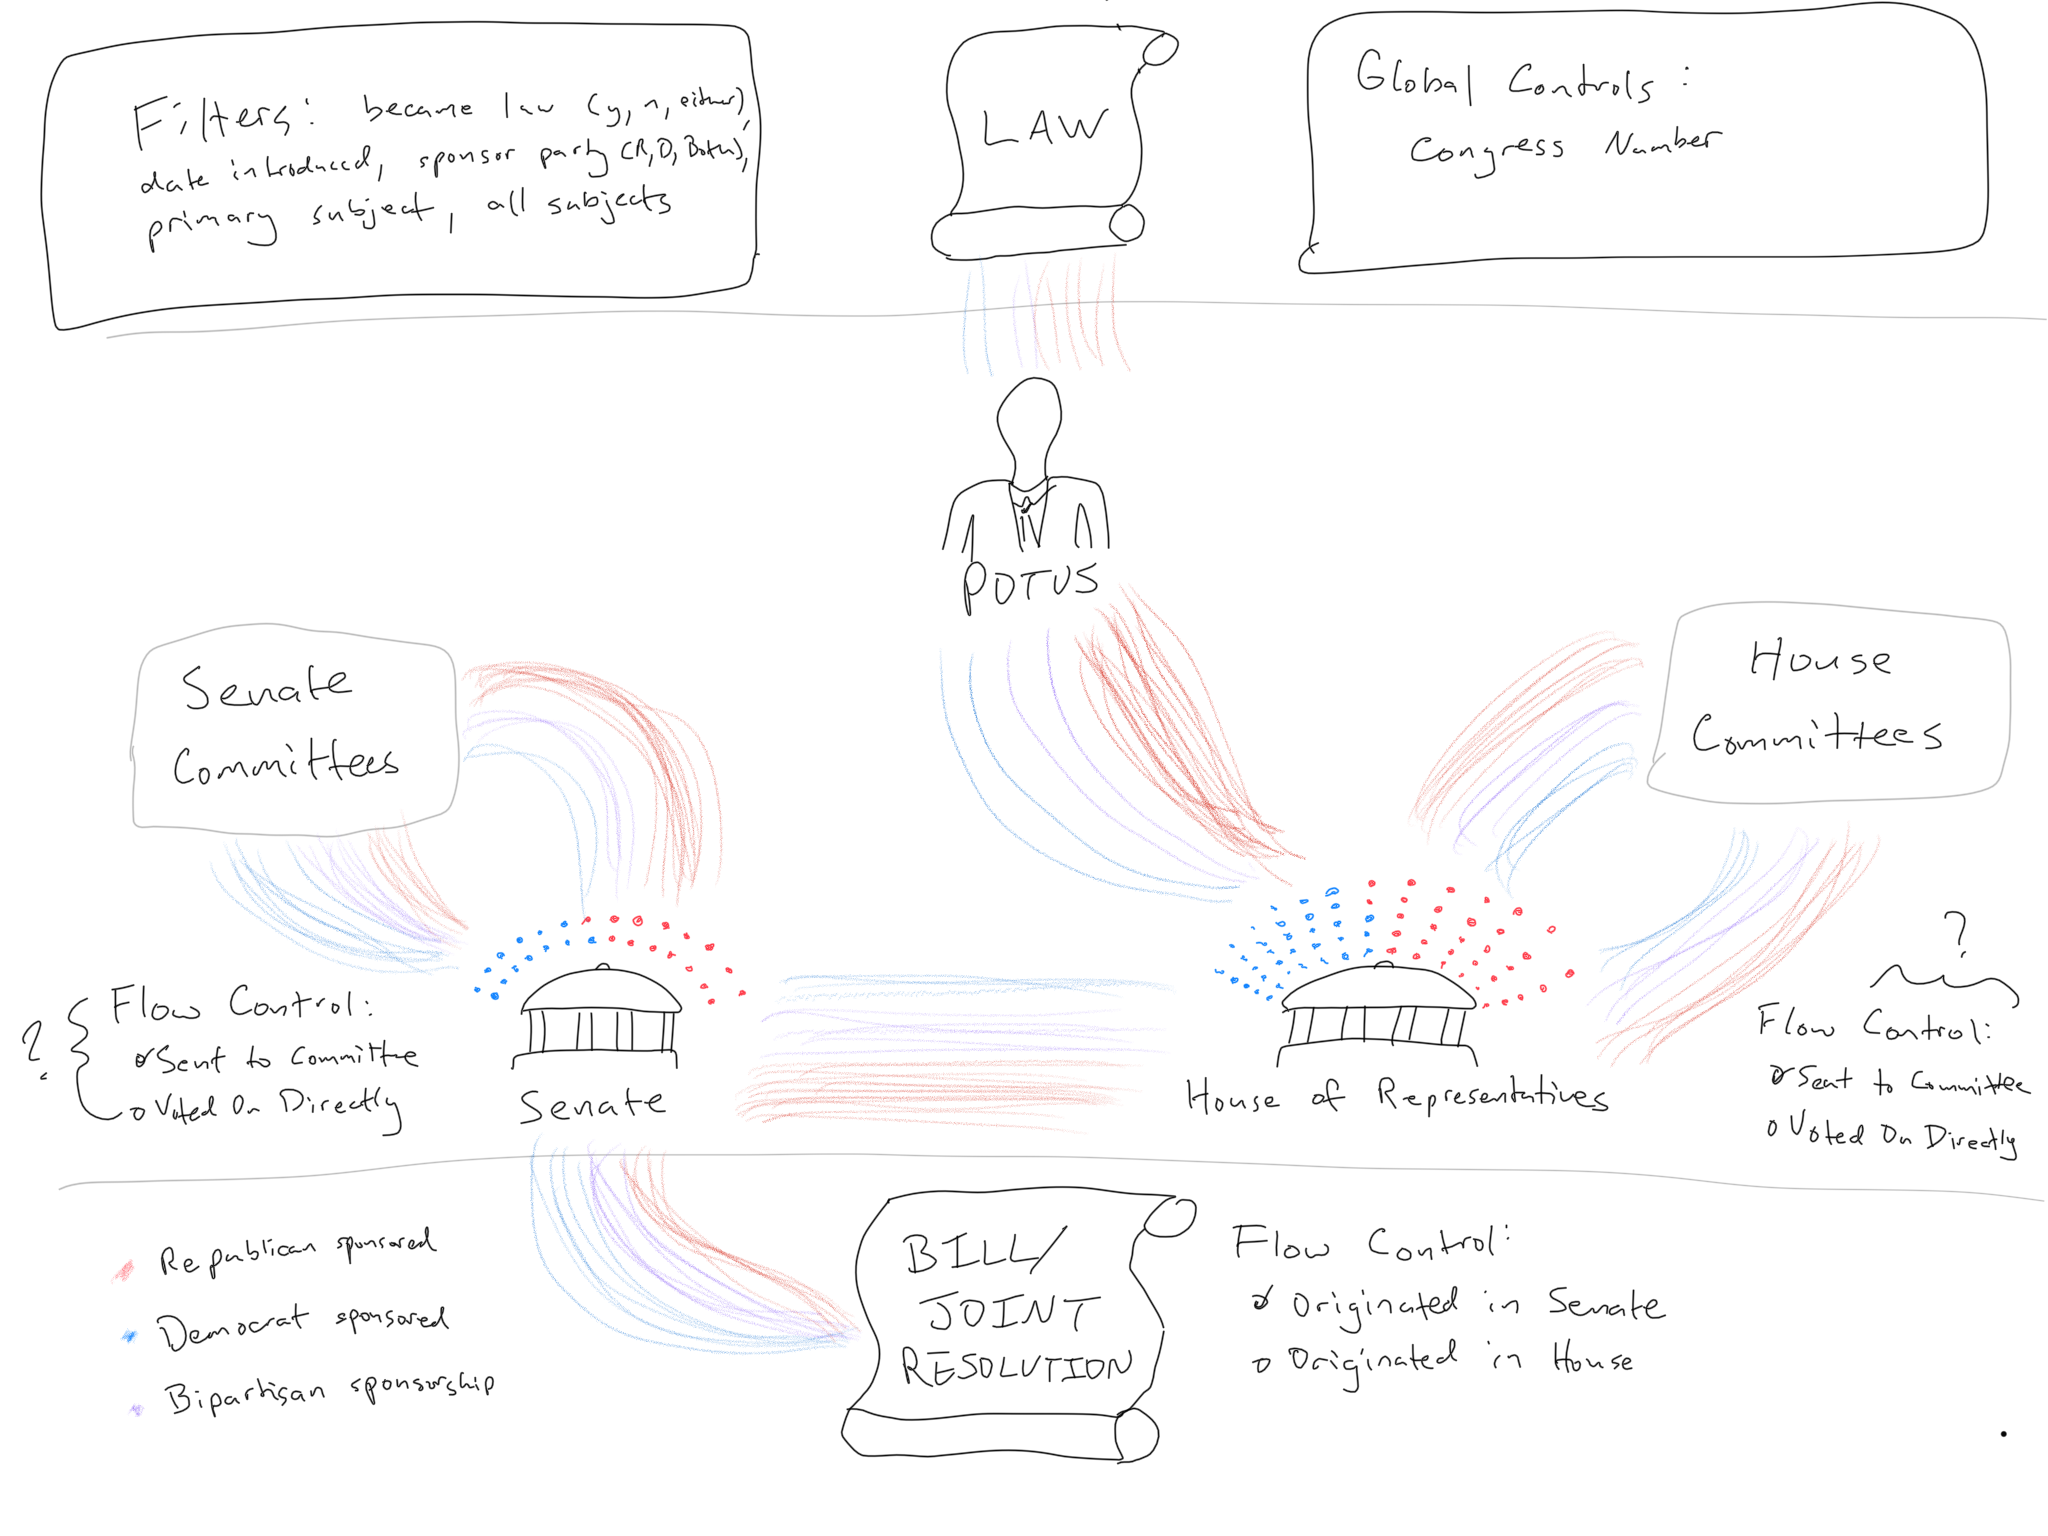 Filters: became law (y, n, either),
date introduced, sponsor party (R, D, Both),
primary subject, all subjects
LAW
Global Controls:
Congress Number
POTUS
Senate
Committees
House
Committees
?
Flow Control:
Sent to Committee
Voted On Directly
Senate
House of Representatives
?
Flow Control:
Sent to Committee
Voted On Directly
Republican sponsored
Democrat sponsored
Bipartisan sponsorship
BILL/
JOINT
RESOLUTION
Flow Control:
Originated in Senate
Originated in House